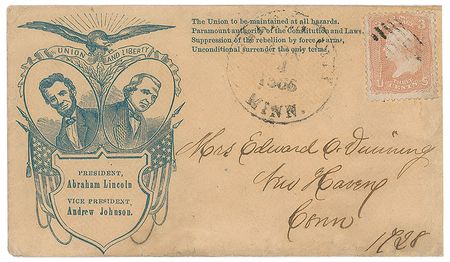 The Union to be maintained at all hazards.
Paramount authority of the Constitution and Laws.
Suppression of the rebellion by force of arms,
Unconditional surrender the only terms.
UNION AND LIBERTY
1865
MINN.
THREE
CENTS
PRESIDENT,
Abraham Lincoln
VICE PRESIDENT,
Andrew Johnson.
Mrs Edward O. Dunning
New Haven
Conn
1228